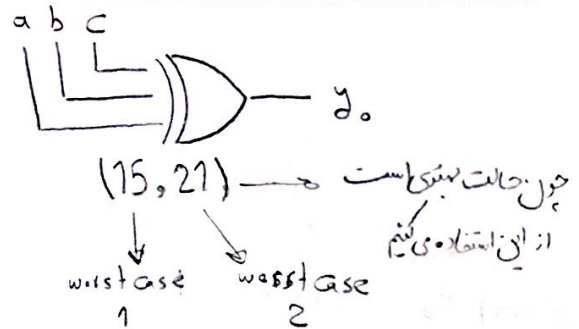 a b c
y₀
(15,21) → چون حالت بهتری است
از این استفاده می کنیم
worst case worst case
1 2